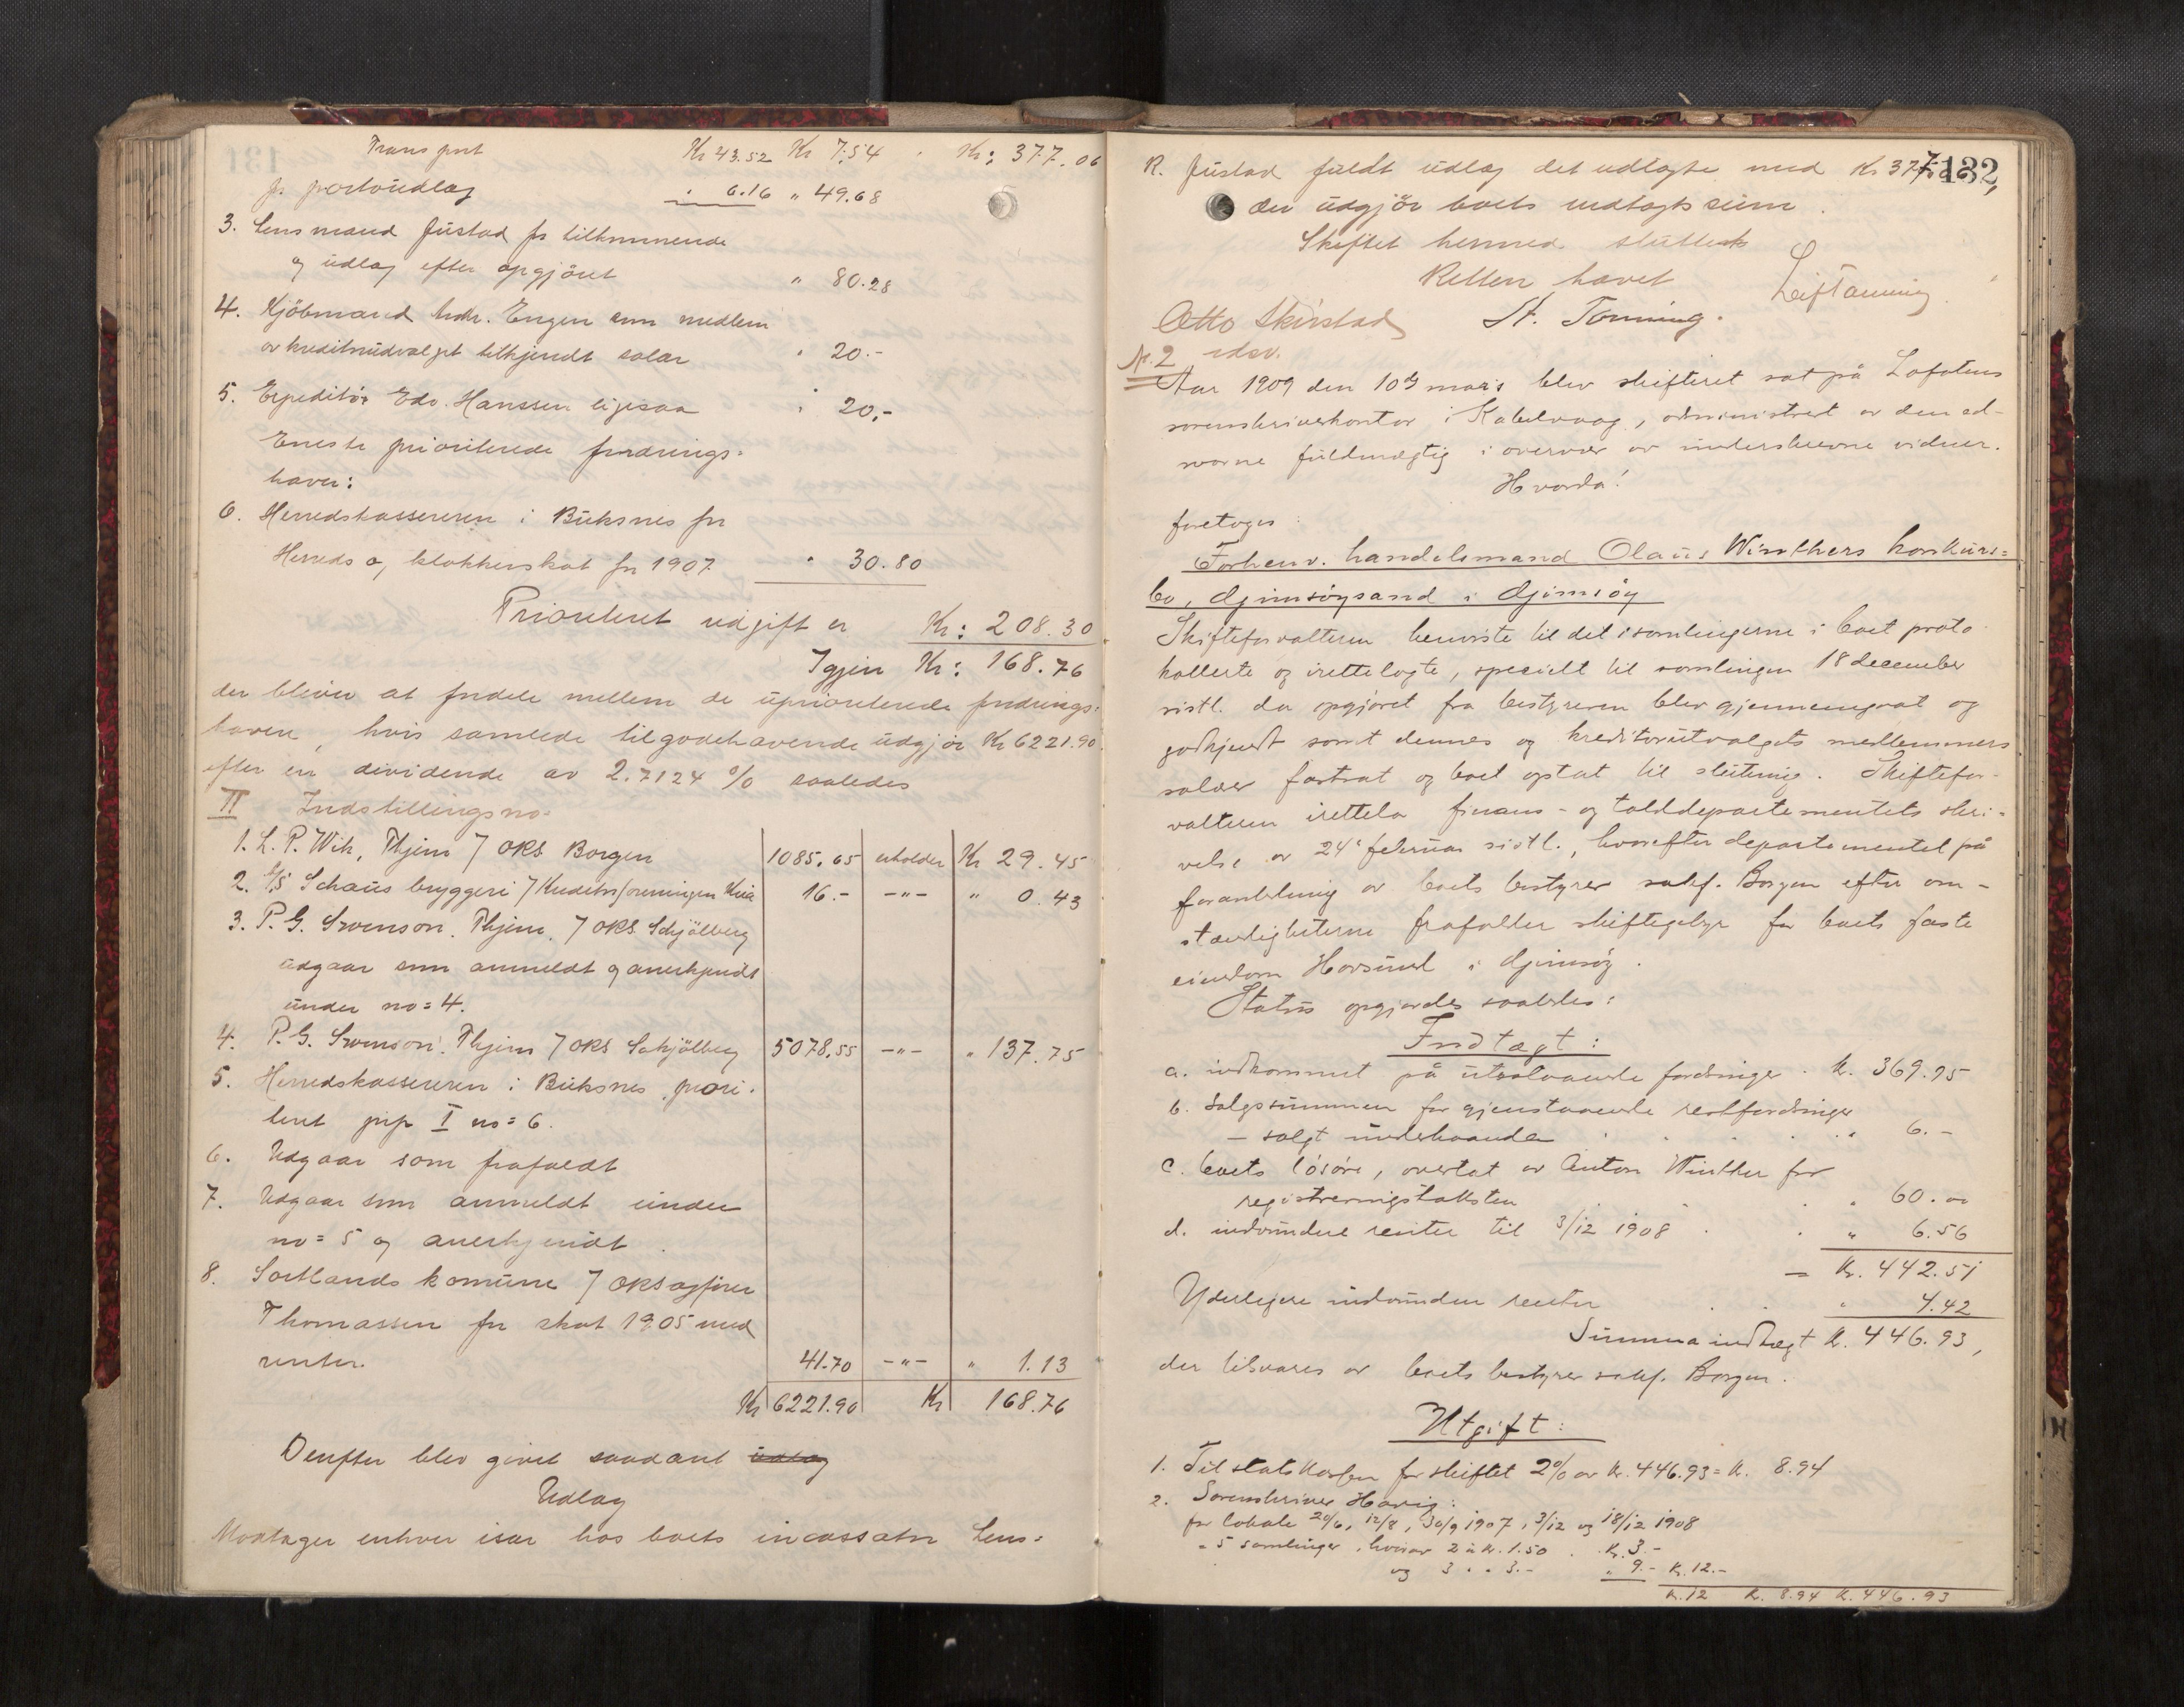 Transport Kr 43.52 Kr 7.54 Kr: 377.06
fr portoudlæg " 6.16 " 49.68
3. Lensmand Justad fr tilkommende
og udlæg efter opgjöret " 80.28
4. Kjöbmand Andr. Engen som medlem
av kreditorudvalget tilkjendt salær " 20.-
5. Expeditör Edv. Hanssen ligesaa " 20.-
Eneste prioriterede fordrings-
haver:
6. Herredskassereren i Buksnes for
Herreds og klokkerskat for 1907 " 30.80
Prioriteret udgift er Kr: 208.30
Igjen Kr: 168.76
der bliver at fordele mellem de uprioriterede fordrings-
havere, hvis samlede tilgodehavende udgjör Kr 6221.90
efter en dividende av 2.7124 % saaledes
II Indstillingsno.
1. L. P. Wik, Thjem / ORS Borgen 1085.65 erholder Kr 29.45
2. A/S Schous bryggeri / Kreditorforeningen Kria 16.- -"- " 0.43
3. P. G. Svenson, Thjem, / ORS Schjölberg
udgaar som anmeldt og anerkjendt
under no= 4.
4. P. G. Svenson, Thjem / ORS Schjölberg 5078.55 -"- " 137.75
5. Herredskassereren i Buksnes, priori-
teret pip I no= 6.
6. Udgaar som frafaldt
7. Udgaar som anmeldt under
no= 5 og anerkjendt.
8. Sortlands komune / ORSagförer
Thomassen for skat 1905 med
renter. 41.70 -"- " 1.13
Kr 6221.90 Kr 168.76
Derefter blev givet saadant udlæg
Udlæg
Modtager enhver især hos boets incassator Lens-
132
R. Justad fuldt udlæg det udlagte med Kr. 377.06,
der udgjör boets indtægts sum.
Skiftet hermed sluttet
Retten hævet
Leif Tanning
Otto Skirstad St. Tonning.
edsv.
Nr. 2
Aar 1909 den 10de mars blev skifteret sat på Lofotens
sorenskriverkontor i Kabelvaag, administrert av den ed-
svorne fuldmægtig i overvær av underskrevne vidner.
Hvorda!
foretoges:
Forhenv. handelsmand Olaus Winthers konkurs-
bo, Gimsöysand i Gimsöy
Skifteforvalteren henviste til det i samlingerne i boet proto-
kollerte og irettelagte, specielt til samlingen 18 december
sistl. da opgjöret fra bestyreren blev gjennemgaat og
godkjendt samt dennes og kreditorutvalgets medlemmers
salær fastsat og boet optat til slutning. Skiftefor-
valteren irettela finans- og tolddepartementets skri-
velse av 24' februar sistl., hvorefter departementet på
foranledning av boets bestyrer sakf. Borgen efter om-
stændigheterne frafalder skiftegebyr for boets faste
eiendom Hovsund i Gimsöy.
Status opgjordes saaledes:
Indtægt:
a. indkommet på utestaaende fordringer . K. 369.95
b. Salgssummen for gjenstaaende restfordringer
– solgt underhaanden . . . . " 6.-
c. boets lösöre, overtat av Anton Winther for
registreringstaksten . . . " 60.00
d. indvundne renter til 3/12 1908 . . " 6.56
= Kr. 442.51
Yderligere indvundne renter . . " 4.42
Summa indtægt K. 446.93,
der tilsvares av boets bestyrer sakf. Borgen.
Utgift:
1. Til statskassen for skiftet 2% av Kr. 446.93 = K. 8.94
2. Sorenskriver Havig:
for lokale 20/6, 12/8, 30/9 1907, 3/12 og 18/12 1908
= 5 samlinger, hvorav 2 à K. 1.50 . K. 3.-
og 3 " " 3.- " 9.- K. 12.-
K. 12 K. 8.94 K. 446.93